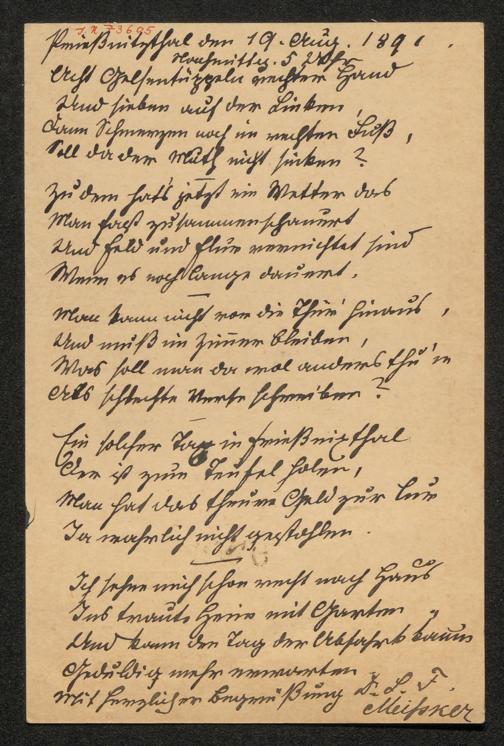 I.N. 73695
Prießnitzthal den 19. Aug. 1891.
Nachmittg. 5 Uhr
Acht Gelsentüppeln rechter Hand
Und sieben auf der Linken,
Dann Schmerzen noch im rechten Fuß,
Soll da der Muth nicht sinken?
Zu dem hat's jetzt ein Wetter das
Man fast zusammenschauert
Und Feld und Flur vernichtet sind
Wenn es noch lange dauert.
Man kann nicht vor die Thür hinaus,
Und muß im Zimmer bleiben,
Was soll man da wol anders thu'n
Als schlechte Verse schreiben?
Ein solcher Tag in Prießnitzthal
Der ist zum Teufel holen,
Man hat das theure Geld zur Cur
Ja wahrlich nicht gestohlen.
Ich sehne mich schon recht nach Haus
Ins traute Heim mit Garten
Und kann den Tag der Abfahrt kaum
Geduldig mehr erwarten
Mit herzlicher Begrüßung
Meißner